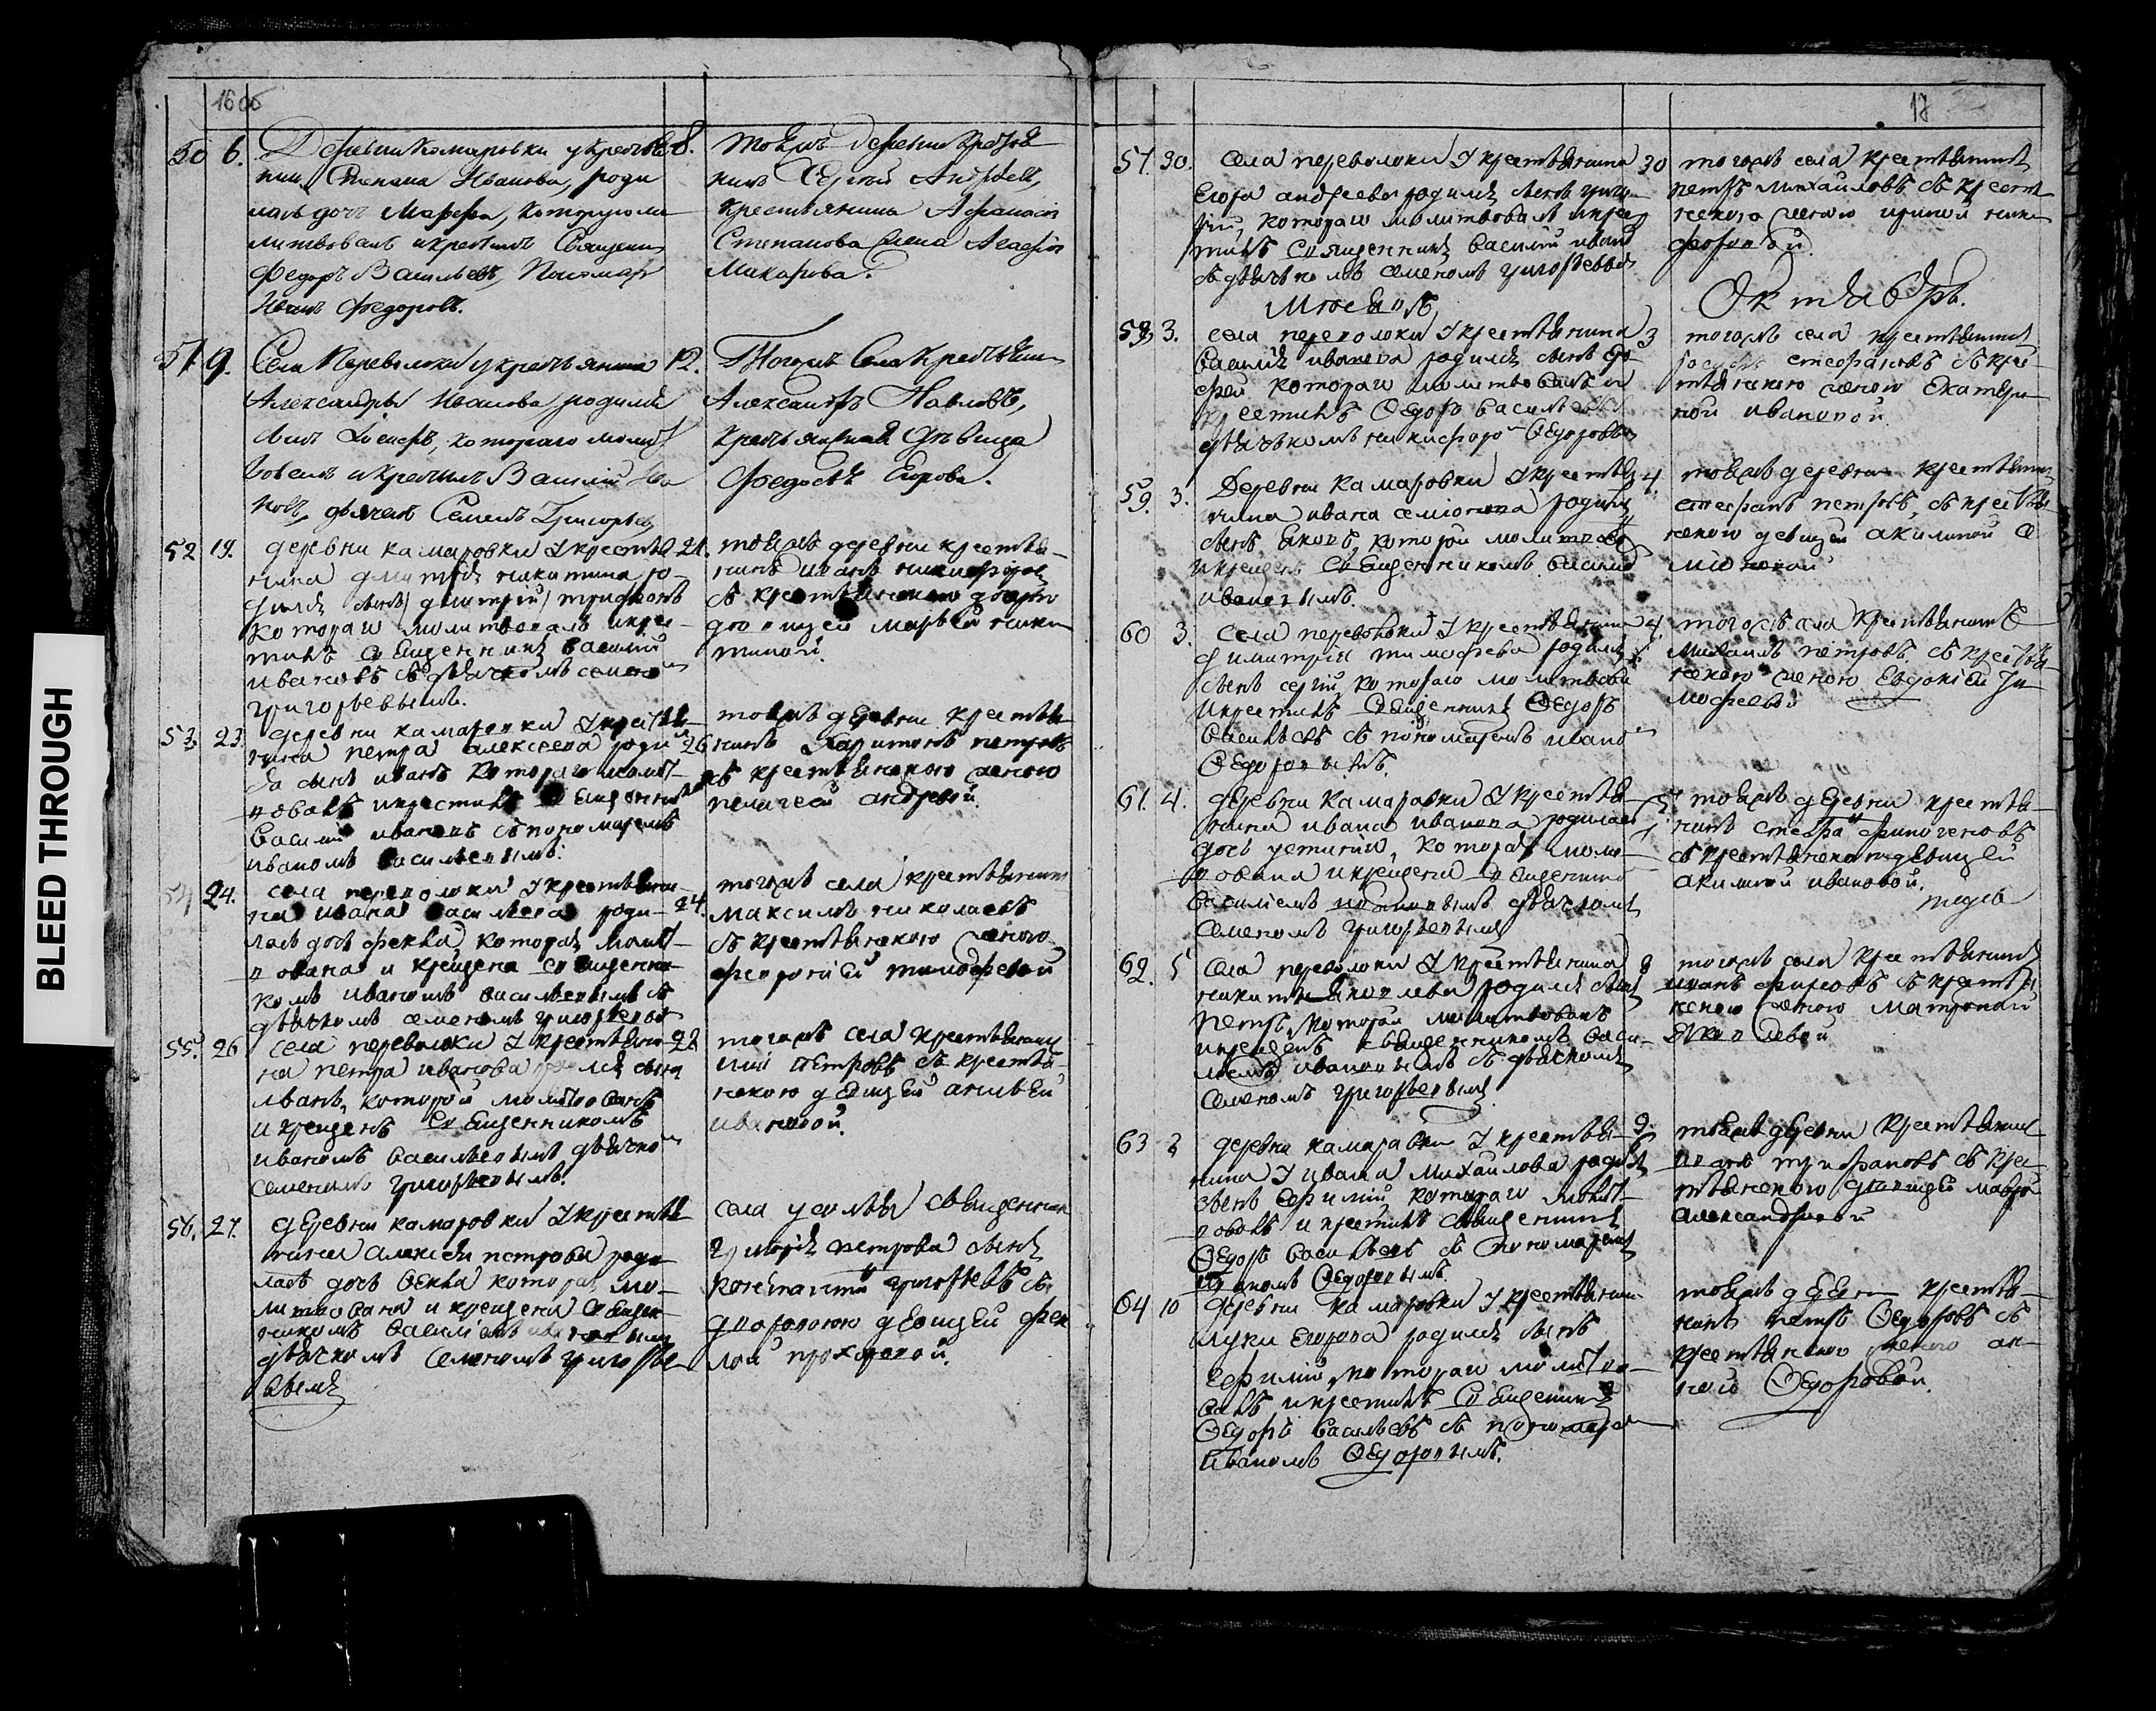 BLEED THROUGH
16 об
50 6. Деревни Комаровки у крестья
нина Степана Иванова, роди
лась дочь Марфа, которую мо
литвовалъ и крестилъ Священни
Федоръ Васильевъ, Пономарь
Иванъ Федоровъ.
8. тоежъ деревни крестья
нинъ Сергей Андреевъ,
крестьянина Афанасия
Степанова жена Агафия
Макарова.
51 9. Села Переволоки у крестьянина
Александра Иванова родился
сынъ Иосифъ, котораго молит
вовалъ и крестилъ Василий Ива
новъ, дьячекъ Семенъ Григорьевъ
12. Тогожъ Села Крестьянин
Александръ Павловъ,
крестьянская девица
Федосья Егорова.
52 19. деревни камаровки У крестья
нина дмитрия никитина ро
дился сынъ трифонъ
котораго молитвовалъ и крес
тилъ священникъ василий
ивановъ съ дьячкомъ семено
григорьевымъ.
21. тоежъ деревни крестья
нинъ иванъ никифоров
съ крестьянскою
девицею марьей ники
тиной.
53. 23. деревни камаровки У крестья
нина петра алексеева роди
ся сынъ иванъ котораго молит
вовалъ и крестилъ священникъ
василий ивановъ съ пономаремъ
иваномъ васильевымъ.
26 тоежъ деревни крестья
нинъ Харитонъ петровъ
съ крестьянскою женою
пелагеей андреевой
54 24. села переволоки У крестьяни
на ивана васильева роди
лась дочь фекла, которая молит
вована и крещена священни
комъ иваномъ васильевымъ съ
дьячкомъ семеномъ григорьевы
24. тогожъ села крестьянинъ
максимъ николаевъ
съ крестьянскою женою
феврониею тимофеевой
55. 26 села переволоки У крестьяни
на петра иванова родился сынъ
иванъ, которой молитвованъ
и крещенъ священникомъ
иваномъ васильевымъ дьячко
семеномъ григорьевымъ.
28 тогожъ села крестьянин
петровъ съ крестья
нскою девицей
ивановой.
56. 27. деревни камаровки У крестья
нина алексея петрова роди
лась дочь фекла которая мо
литвована и крещена священ
никомъ василиемъ ивановымъ
дьячкомъ семеномъ григорье
вымъ
села усолья священника
григория петрова сынъ
константинъ григорьевъ съ
дворовою девицей фек
лой прохоровой.
17
57. 30. села переволоки У крестьянина
егора андреева родился сынъ григо
рий, котораго молитвовалъ и крес
тилъ священникъ василий ивано
съ дьячкомъ семеномъ григорьевы
30 тогожъ села крестьянинъ
петръ михайловъ съ крестья
нскою женою ириной ники
форовой.
Месяцъ
Октябрь.
58 3. села переволоки У крестьянина
василия иванова родился сынъ еро
фей котораго молитвовалъ и
крестилъ Федоръ васильевъ съ
дьячькомъ никифоро Федоровы
3 тогожъ села крестьянинъ
стефановъ съ крес
тьянскою женою Екатери
ной ивановой
59. 3. Деревни камаровки У крестья
нина ивана семионова родился
сынъ яковъ, которой молитвованъ
и крещенъ священникомъ василие
ивановымъ.
4. тоежъ деревни крестьянинъ
стефанъ петровъ, съ крестья
нскою девицей акилиной се
мионовой
60 3. села переволоки У крестьянина
димитрия тимофеева родился
сынъ сергий, котораго молитвова
и крестилъ священникъ Федоръ
васильевъ съ пономаремъ ивано
Федоровымъ.
4. тогожъ села крестьянинъ
михаилъ петровъ съ крестья
нскою женою Евдокией ти
мофеевой
61. 4. деревни камаровки У крестья
нина ивана иванова родилась
дочь устиния, которая моли
твована и крещена священико
василиемъ ивановымъ дьячкомъ
семеномъ григорьевымъ
5. тоежъ деревни крестья
нинъ стефанъ финогеновъ
съ крестьянскою девицей
акилиной ивановой.
62. 5 села переволоки У крестьянина
никиты яковлева родился сынъ
петръ, которой молитвованъ
и крещенъ священникомъ васи
лиемъ ивановымъ съ дьячкомъ
семеномъ григорьевымъ
8 тогожъ села крестьянинъ
иванъ фирсовъ съ крестья
нскою женою матроной
яковлевой
63 8 деревни камаравки У крестья
нина У ивана михайлова родился
сынъ Ефимий котораго молит
вовалъ и крестилъ священникъ
Федоръ васильевъ съ пономаремъ
иваномъ Федоровымъ.
9. тоежъ деревни крестьянин
иванъ трифоновъ съ крес
тьянскою девицей маврой
александровой
64 10 деревни камаровки У крестьянин
луки егорова родился сынъ
Ефимий, котораго молитво
валъ и крестилъ священникъ
Федоръ васильевъ съ пономаре
иваномъ Федоровымъ.
тоежъ деревни крестья
нинъ петръ Федоровъ съ
крестьянскою женою ан
ной Федоровой.